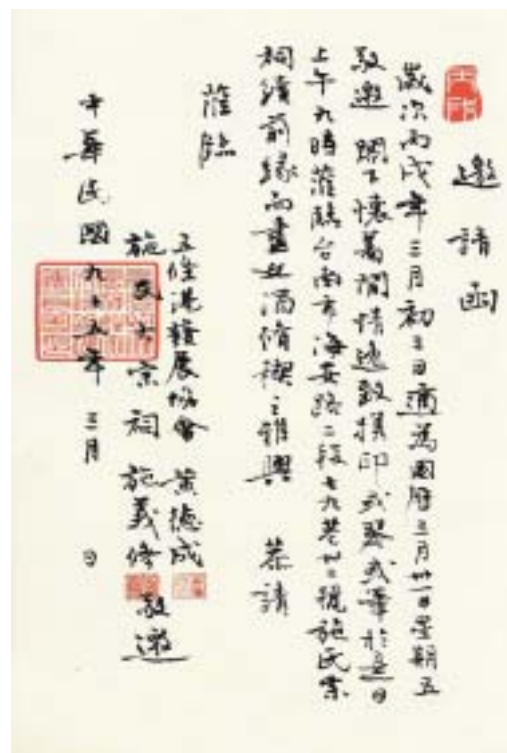 邀請函
歲次丙戌年三月初三日適為國曆三月卅一日星期五
敬邀 閣下懷萬閒情逸致攜印或琴或筆於這日
上午九時蒞臨台南市海安路二段七九巷廿二號施氏宗
祠續前緣而畫丝酒脩禊之雅興 恭請
蒞臨
五條港發展協會 黃德成
施氏大宗祠 施義修 敬邀
中華民國九十五年 三月 日